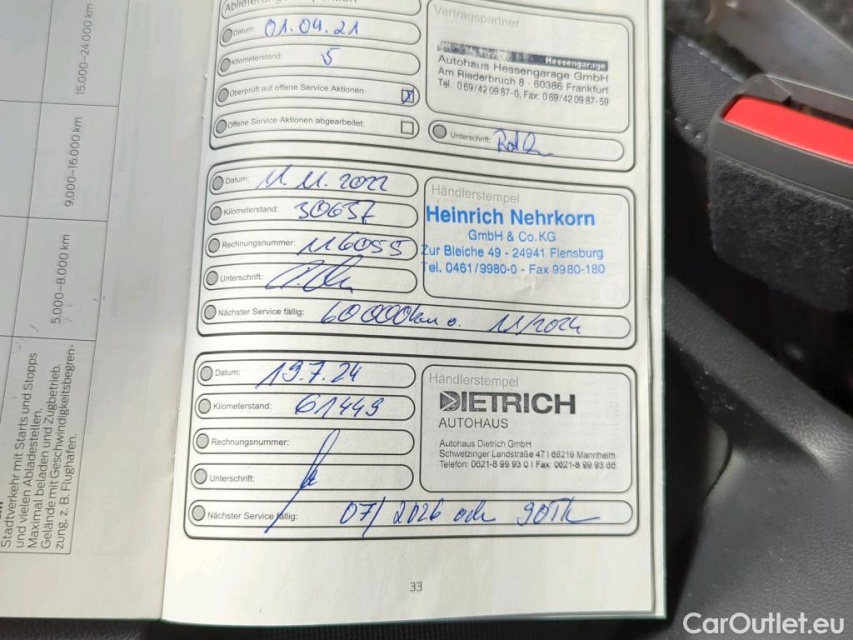 15.000–24.000 km
9.000–16.000 km
5.000–8.000 km
Stadtverkehr mit Starts und Stopps
und vielen Abladestellen.
Maximal beladen und Zugbetrieb.
Gelände mit Geschwindigkeitsbegren-
zung, z. B. Flughafen.
Datum: 01.04.21
Kilometerstand: 5
Überprüft auf offene Service Aktionen: X
Offene Service Aktionen abgearbeitet:
Vertragspartner
Hessengarage
Autohaus Hessengarage GmbH
Am Riederbruch 8 · 60386 Frankfurt
Unterschrift:
Datum: 11.11.2022
Kilometerstand: 30637
Rechnungsnummer: 116055
Unterschrift:
Nächster Service fällig: 60000km o. 11/2024
Händlerstempel
Heinrich Nehrkorn
GmbH & Co.KG
Zur Bleiche 49 - 24941 Flensburg
Tel. 0461/9980-0 - Fax 9980-180
Datum: 19.7.24
Kilometerstand: 61449
Rechnungsnummer:
Unterschrift:
Nächster Service fällig: 07/2026 oder 90Tk
Händlerstempel
DIETRICH
AUTOHAUS
Autohaus Dietrich GmbH
Schwetzinger Landstraße 47 I 68219 Mannheim
Telefon: 0621-8 99 93 0 I Fax 0621-8 99 93 66
33
CarOutlet.eu